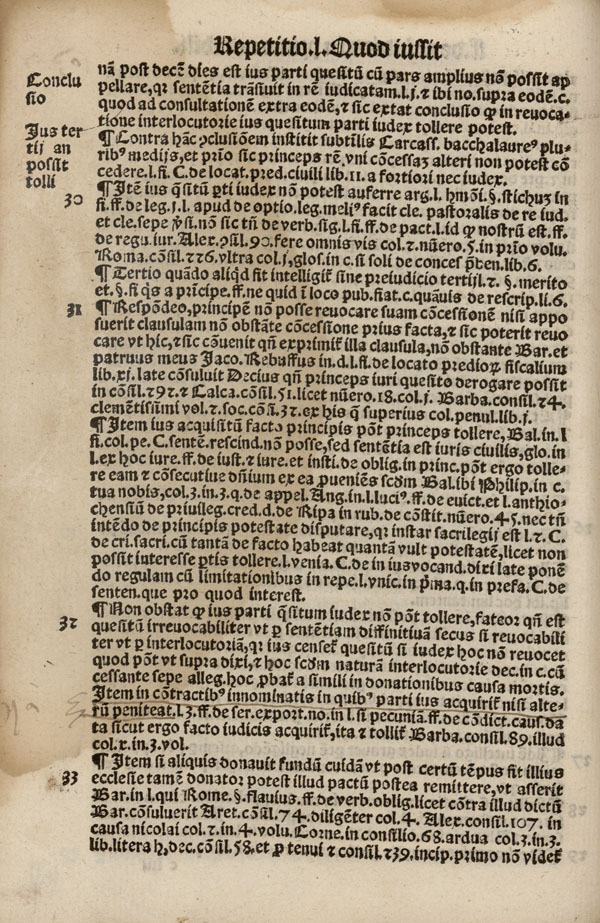 Repetitio.l. Quod iussit
nā post decē dies est ius parti quesitū cū pars amplius nō possit ap
Conclu
sio
pellare, qꝛ sentētia trāsiuit in rē iudicatam.l.j.⁊ ibi no.supra eodē.c.
quod ad consultationē extra eodē, ⁊ sic extat conclusio ꝙ in reuoca-
tione interlocutorie ius quesitum parti iudex tollere potest.
Jus ter
tij an
possit
tolli
¶ Contra hāc ɔclusiōem institit subtilis Carcass. bacchalaureꝰ plu-
ribꝰ medijs, et prīo sic princeps rē, vni cōcessaȝ alteri non potest cō
cedere.l.fi.C.de locat.pred.ciuili lib.11.a fortiori nec iudex.
30
¶ Itē ius q̄situ ꝑti iudex nō potest auferre arg.l. hmōi.§.stichuȝ in
fi.ff.de leg.j.l. apud de optio.leg.meliꝰ facit cle. pastoralis de re iud.
et cle.sepe ꝟ̄ si.nō sic tñ de verb.sig.l.fi.ff.de pact.l.id ꝙ nostrū est.ff.
de regu.iur.Alex.ɔsil.90.fere omnis vis col.⁊.nūero.5.in prīo volu.
Roma.cōsil.⁊⁊6.vltra col.j.glos.in c.si soli de conces p̄ben.lib.6.
¶ Tertio quādo aliqd fit intelligiť sine preiudicio tertij.l.⁊.§.merito
et.§.si q̄s a prīcipe.ff.ne quid ī loco pub.fiat.c.quāuis de rescrip.li.6.
31
¶ Respōdeo, principē nō posse reuocare suam cōcessionē nisi appo
suerit clausulam nō obstāte cōcessione prius facta, ⁊ sic poterit reuo
care vt hic, ⁊ sic cōuenit qñ exprimiť illa clausula, nō obstante Bar.et
patruus meus Jaco. Rebuffus in.d.l.fi.de locato predioꝝ fiscalium
lib.xj.late cōsuluit Decius qñ princeps iuri quesito derogare possit
in cōsil.⁊9⁊.⁊ Calca.cōsil.51.licet nūero.18.col.j. Barba.consil.⁊4.
clementissimi vol.⁊.soc.cōsi.3⁊.ex his q̄ superius col.penul.lib.j.
¶ Item ius acquisitū facto principis pōt princeps tollere, Bal.in.l
fi.col.pe.C.sentē.rescind.nō posse, sed sentētia est iuris ciuilis, glo.in
l.ex hoc iure.ff.de iust.⁊ iure.et insti.de oblig.in princ.pōt ergo tolle-
re eam ⁊ cōsecutiue dñium ex ea ꝓueniēs scdm Bal.ibi Philip.in c.
tua nobis, col.3.in.3.q.de appel.Ang.in.l.luciꝰ.ff.de euict.et l.anthio-
chensiū de priuileg.cred.d.de Ripa in rub.de cōstit.nūero.45.nec tñ
intēdo de principis potestate disputare, qꝛ instar sacrilegij est l.⁊.C.
de cri.sacri.cū tantā de facto habeat quantā vult potestatē, licet non
possit interesse ꝑtis tollere.l.venia.C.de in ius vocand.dixi late ponē
do regulam cū limitationibus in repe.l.vnic.in p̄ma.q.in prefa.C.de
senten.que pro quod interest.
3⁊
¶ Non obstat ꝙ ius parti q̄situm iudex nō pōt tollere, fateor qñ est
quesitū irreuocabiliter vt ꝑ sentētiam diffinitiuā secus si reuocabili
ter vt ꝑ interlocutoriā, qꝛ ius censeť quesitū si iudex hoc nō reuocet
quod pōt vt supra dixi, ⁊ hoc scdm naturā interlocutorie dec.in c.cū
cessante sepe alleg.hoc ꝓbať a simili in donationibus causa mortis.
Item in cōtractibꝰ innominatis in quibꝰ parti ius acquiriť nisi alte-
rū peniteat.l.3.ff.de ser.export.no.in l.si pecuniā.ff.de cōdict.caus.da
ta sicut ergo facto iudicis acquiriť, ita ⁊ tolliť Barba.consil.89.illud
col.x.in.3.vol.
33
¶ Item si aliquis donauit fundū cuidā vt post certū tēpus sit illius
ecclesie tamē donator potest illud pactū postea remittere, vt asserit
Bar.in l.qui Rome.§.flauius.ff.de verb.oblig.licet cōtra illud dictū
Bar.cōsuluerit Aret.cōsil.74.diligēter col.4. Alex.consil.107. in
causa nicolai col.⁊.in.4.volu. Corne.in consilio.68.ardua col.3.in.3.
lib.litera h, dec.cōsil.58.et ꝓ tenui ⁊ consil.⁊39.incip.primo nō videť